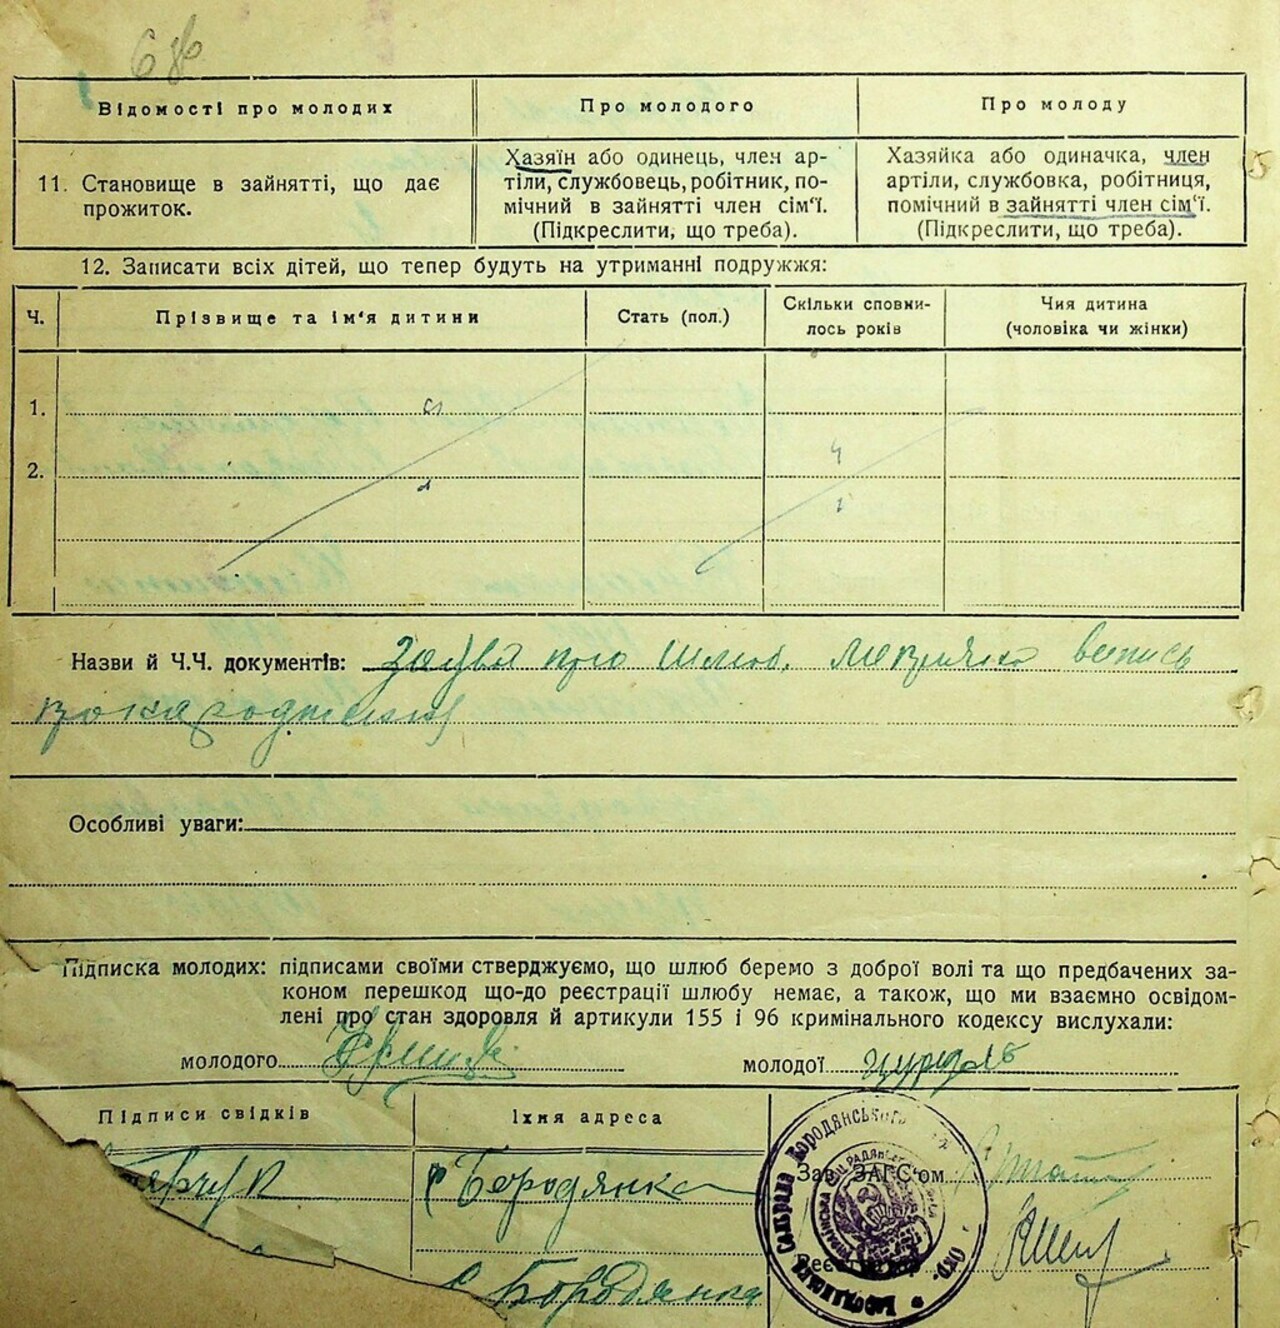 Відомості про молодих
Про молодого
Про молоду
11. Становище в зайнятті, що дає
прожиток.
Хазяїн або одинець, член ар-
тіли, службовець, робітник, по-
мічний в зайнятті член сім'ї.
(Підкреслити, що треба).
Хазяйка або одиначка, член
артіли, службовка, робітниця,
помічний в зайнятті член сім'ї.
(Підкреслити, що треба).
12. Записати всіх дітей, що тепер будуть на утриманні подружжя:
Ч.
Прізвище та ім'я дитини
Стать (пол.)
Скільки сповни-
лось років
Чия дитина
(чоловіка чи жінки)
1.
2.
Назви й Ч.Ч. документів: Заява про шлюб, вепись
Особливі уваги:
Підписка молодих: підписами своїми стверджуємо, що шлюб беремо з доброї волі та що предбачених за-
коном перешкод що-до реєстрації шлюбу немає, а також, що ми взаємно освідом-
лені про стан здоровля й артикули 155 і 96 кримінального кодексу вислухали:
молодого
молодої
Підписи свідків
Їхня адреса
с Бородянка
Зав. ЗАГС'ом
Реєстратор
с Бородянка